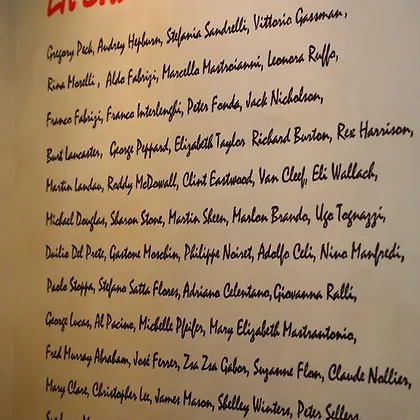 Gregory Peck, Audrey Hepburn, Stefania Sandrelli, Vittorio Gassman,
Rina Morelli, Aldo Fabrizi, Marcello Mastroianni, Leonora Ruffo,
Franco Fabrizi, Franco Interlenghi, Peter Fonda, Jack Nicholson,
Burt Lancaster, George Peppard, Elizabeth Taylor Richard Burton, Rex Harrison,
Martin Landau, Roddy McDowall, Clint Eastwood, Van Cleef, Eli Wallach,
Michael Douglas, Sharon Stone, Martin Sheen, Marlon Brando, Ugo Tognazzi,
Duilio Del Prete, Gastone Moschin, Philippe Noiret, Adolfo Celi, Nino Manfredi,
Paolo Stoppa, Stefano Satta Flores, Adriano Celentano, Giovanna Ralli,
George Lucas, Al Pacino, Michelle Pfeifer, Mary Elizabeth Mastrantonio,
Fred Murray Abraham, José Ferrer, Zsa Zsa Gabor, Suzanne Flon, Claude Nollier,
Mary Clare, Christopher Lee, James Mason, Shelley Winters, Peter Sellers